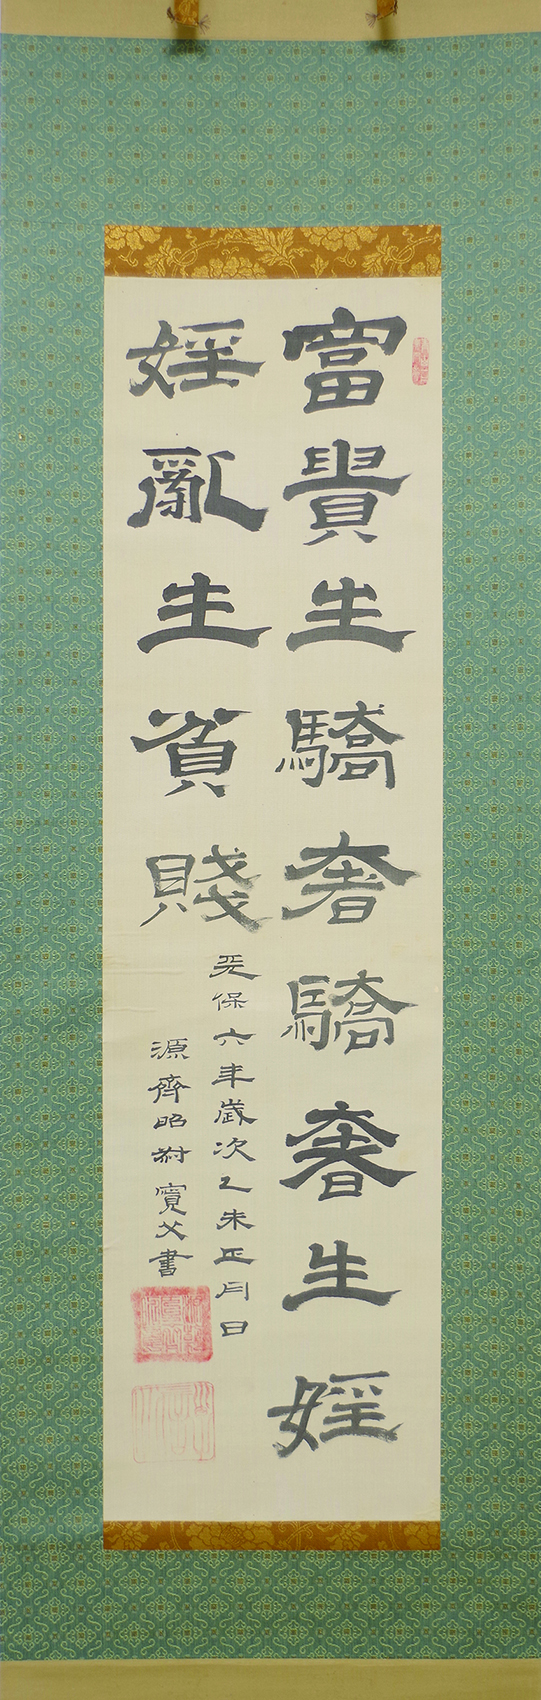 富貴生驕奢驕奢生婬
婬亂生貧賤
天保六年歳次乙未正月日
源齊昭尉寬父書